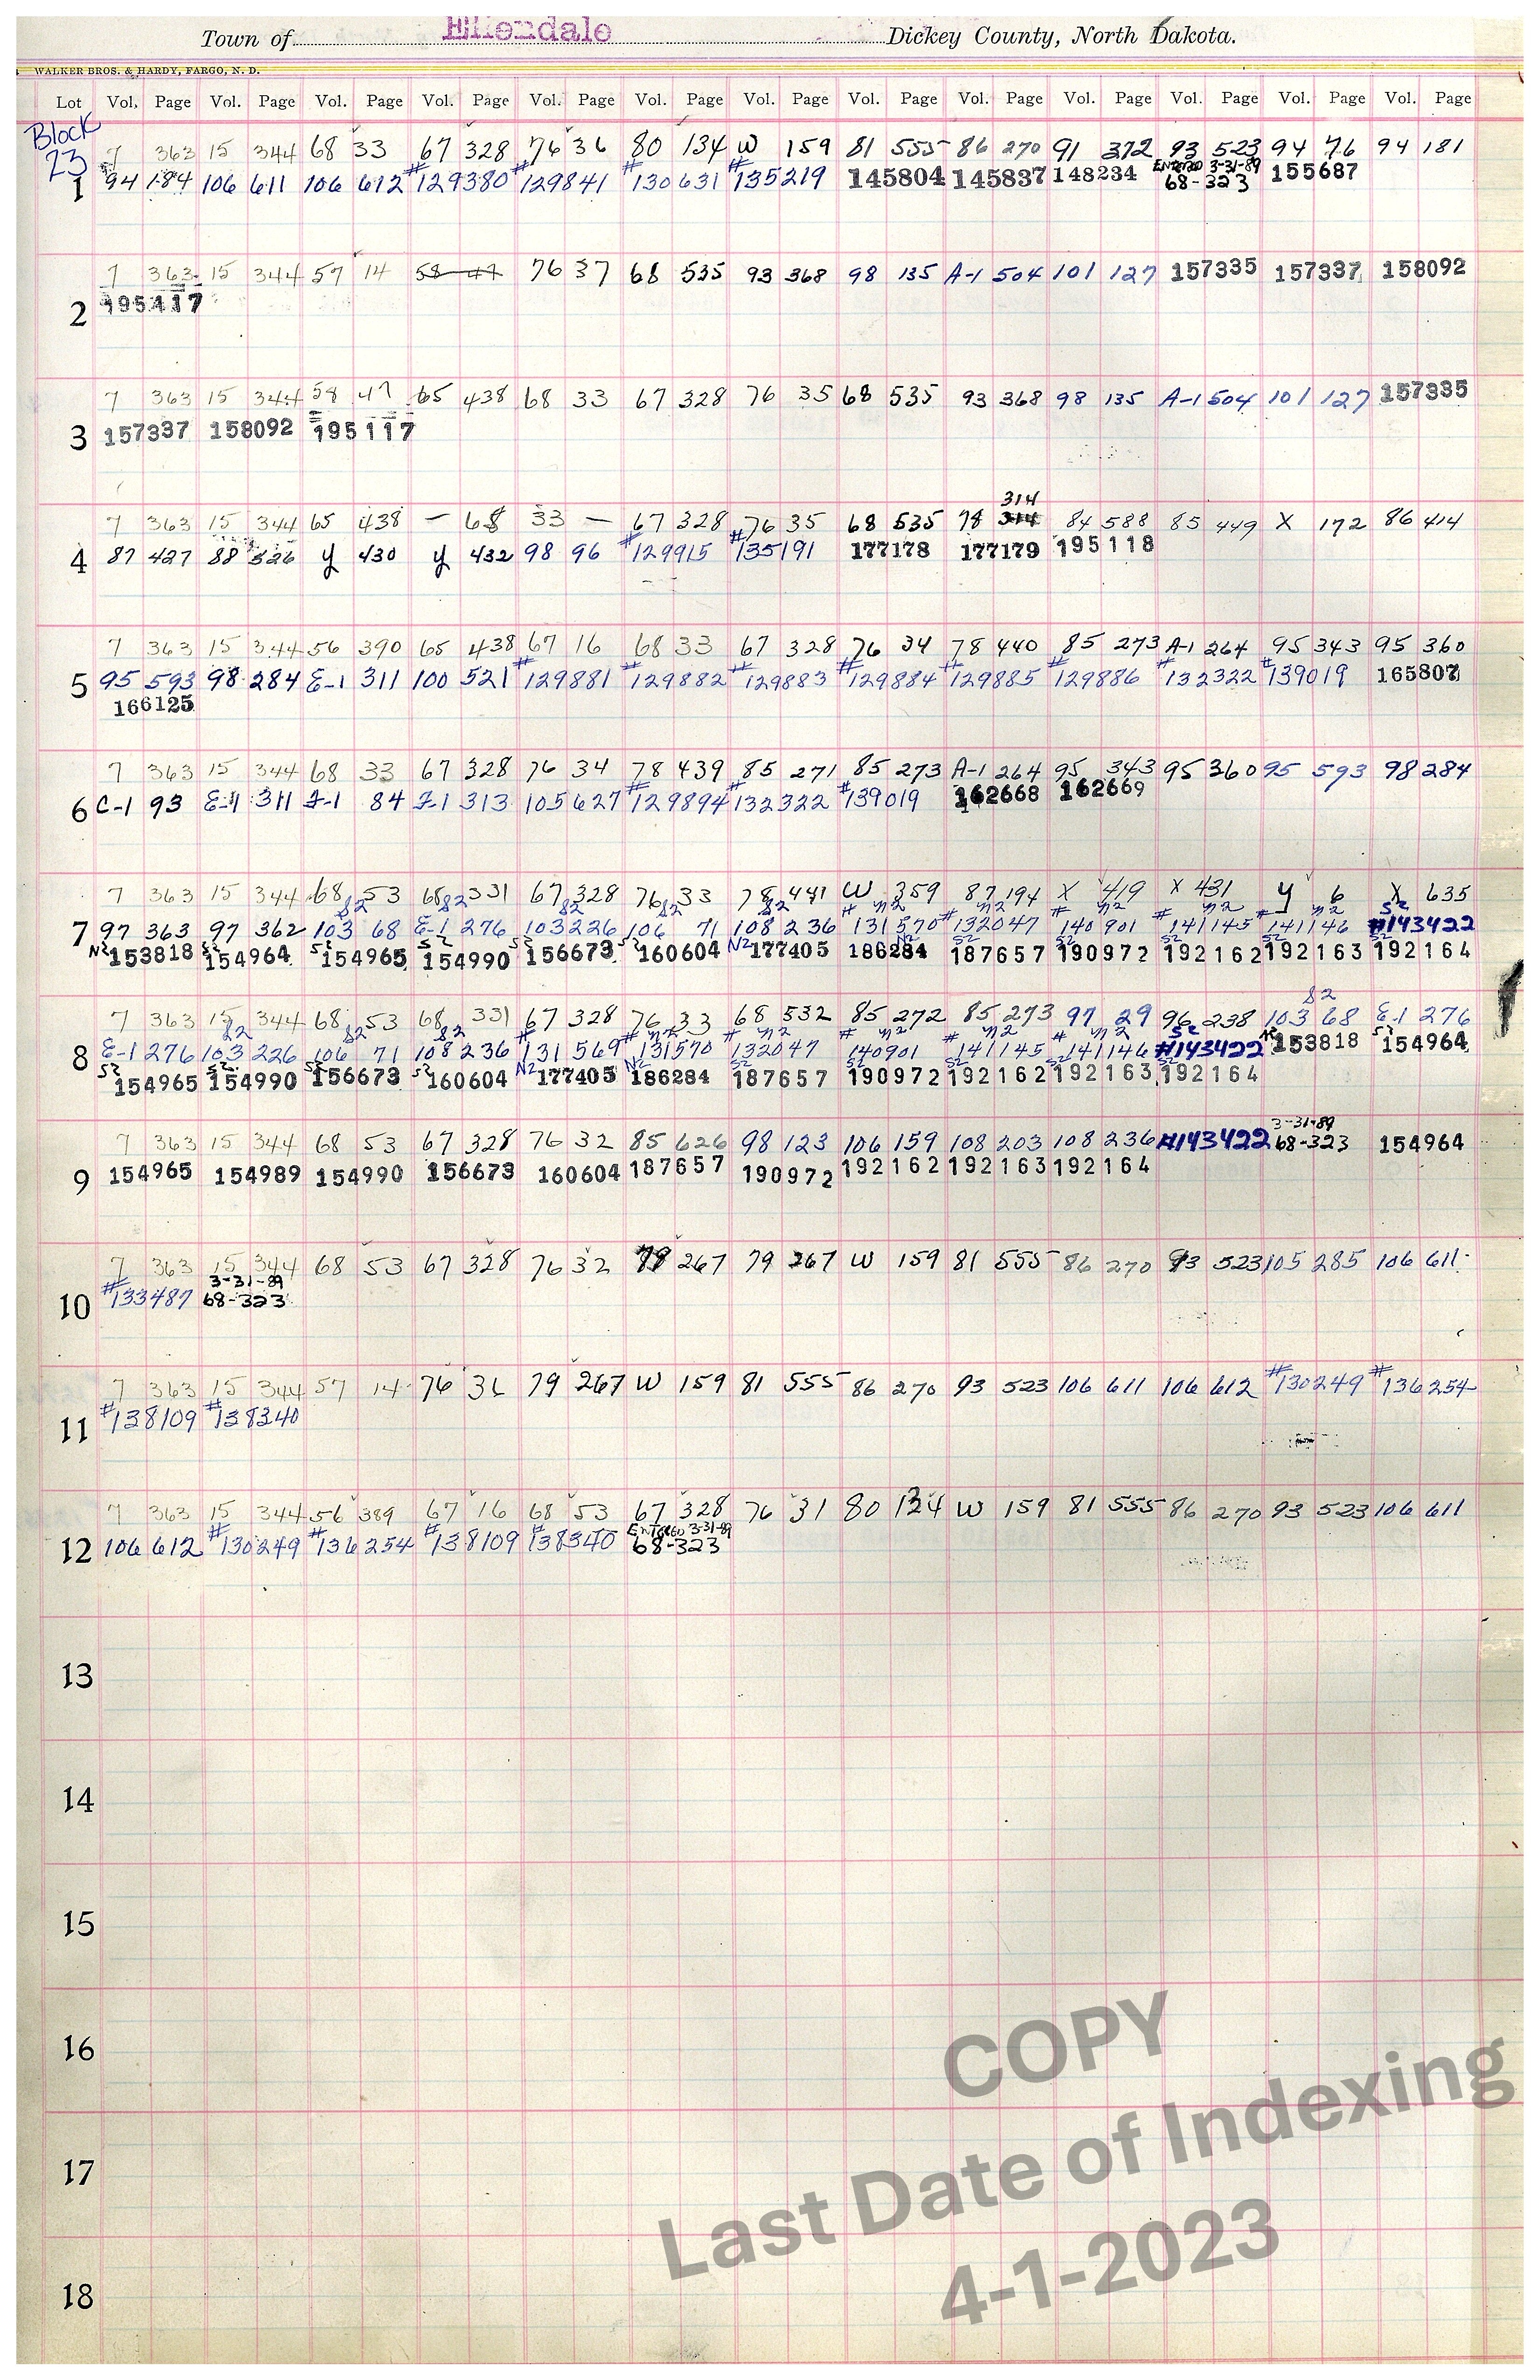 Town of Ellendale Dickey County, North Dakota.
WALKER BROS. & HARDY, FARGO, N. D.
Lot Vol. Page Vol. Page Vol. Page Vol. Page Vol. Page Vol. Page Vol. Page Vol. Page Vol. Page Vol. Page Vol. Page Vol. Page Vol. Page
Block
23
7 363 15 344 68 33 67 328 76 36 80 134 W 159 81 555 86 270 91 372 93 523 94 76 94 181
1 94 184 106 611 106 612 #129380 #129841 #130631 #135219 145804 145837 148234 ENTERED 3-31-89 68-323 155687
7 363 15 344 57 14 58 47 76 37 68 535 93 368 98 135 A-1 504 101 127 157335 157337 158092
2 195117
7 363 15 344 58 47 65 438 68 33 67 328 76 35 68 535 93 368 98 135 A-1 504 101 127 157335
3 157337 158092 195117
314
7 363 15 344 65 438 — 68 33 — 67 328 76 35 68 535 78 314 84 588 85 449 X 172 86 414
4 87 427 88 326 y 430 y 432 98 96 #129915 #135191 177178 177179 195118
7 363 15 344 56 390 65 438 67 16 68 33 67 328 76 34 78 440 85 273 A-1 264 95 343 95 360
5 95 593 98 284 E-1 311 100 521 #129881 #129882 #129883 #129884 #129885 #129886 #132322 #139019 165807
166125
7 363 15 344 68 33 67 328 76 34 78 439 85 271 85 273 A-1 264 95 343 95 360 95 593 98 284
6 C-1 93 E-1 311 F-1 84 F-1 313 105 627 #129894 #132322 #139019 162668 162669
7 363 15 344 68 53 68 331 67 328 76 33 78 441 W 359 87 194 X 419 X 431 y 6 X 635
S2 S2 S2 S2 S2 # N2 # N2 # N2 # N2 # N2 S2
7 97 363 97 362 103 68 E-1 276 103 226 106 71 108 236 131570 132047 140901 141145 141146 #143422
N2 153818 S2 154964 S2 154965 S2 154990 S2 156673 S2 160604 N2 177405 N2 186284 S2 187657 S2 190972 S2 192162 S2 192163 S2 192164
S2
7 363 15 344 68 53 68 331 67 328 76 33 68 532 85 272 85 273 97 29 96 238 103 68 E-1 276
S2 S2 S2 # # N2 # N2 # N2 # N2 # N2 S2
8 E-1 276 103 226 106 71 108 236 131569 131570 132047 140901 141145 141146 #143422 N2 153818 S2 154964
S2 154965 S2 154990 S2 156673 S2 160604 N2 177405 N2 186284 S2 187657 S2 190972 S2 192162 S2 192163 S2 192164
7 363 15 344 68 53 67 328 76 32 85 626 98 123 106 159 108 203 108 236 #143422 3-31-89 68-323 154964
9 154965 154989 154990 156673 160604 187657 190972 192162 192163 192164
7 363 15 344 68 53 67 328 76 32 79 267 79 267 W 159 81 555 86 270 93 523 105 285 106 611
10 #133487 3-31-89 68-323
7 363 15 344 57 14 76 31 79 267 W 159 81 555 86 270 93 523 106 611 106 612 #130249 #136254
11 #138109 #138340
7 363 15 344 56 389 67 16 68 53 67 328 76 31 80 134 W 159 81 555 86 270 93 523 106 611
12 106 612 #130249 #136254 #138109 #138340 ENTERED 3-31-89 68-323
13
14
15
16
17
18
COPY
Last Date of Indexing
4-1-2023